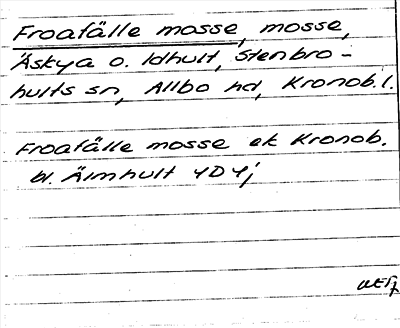 Froafälle mosse, mosse,
Äskya o. Idhult, Stenbro-
hults sn, Allbo hd, Kronob. l.
Froafälle mosse ek Kronob.
bl. Älmhult 4D 4j